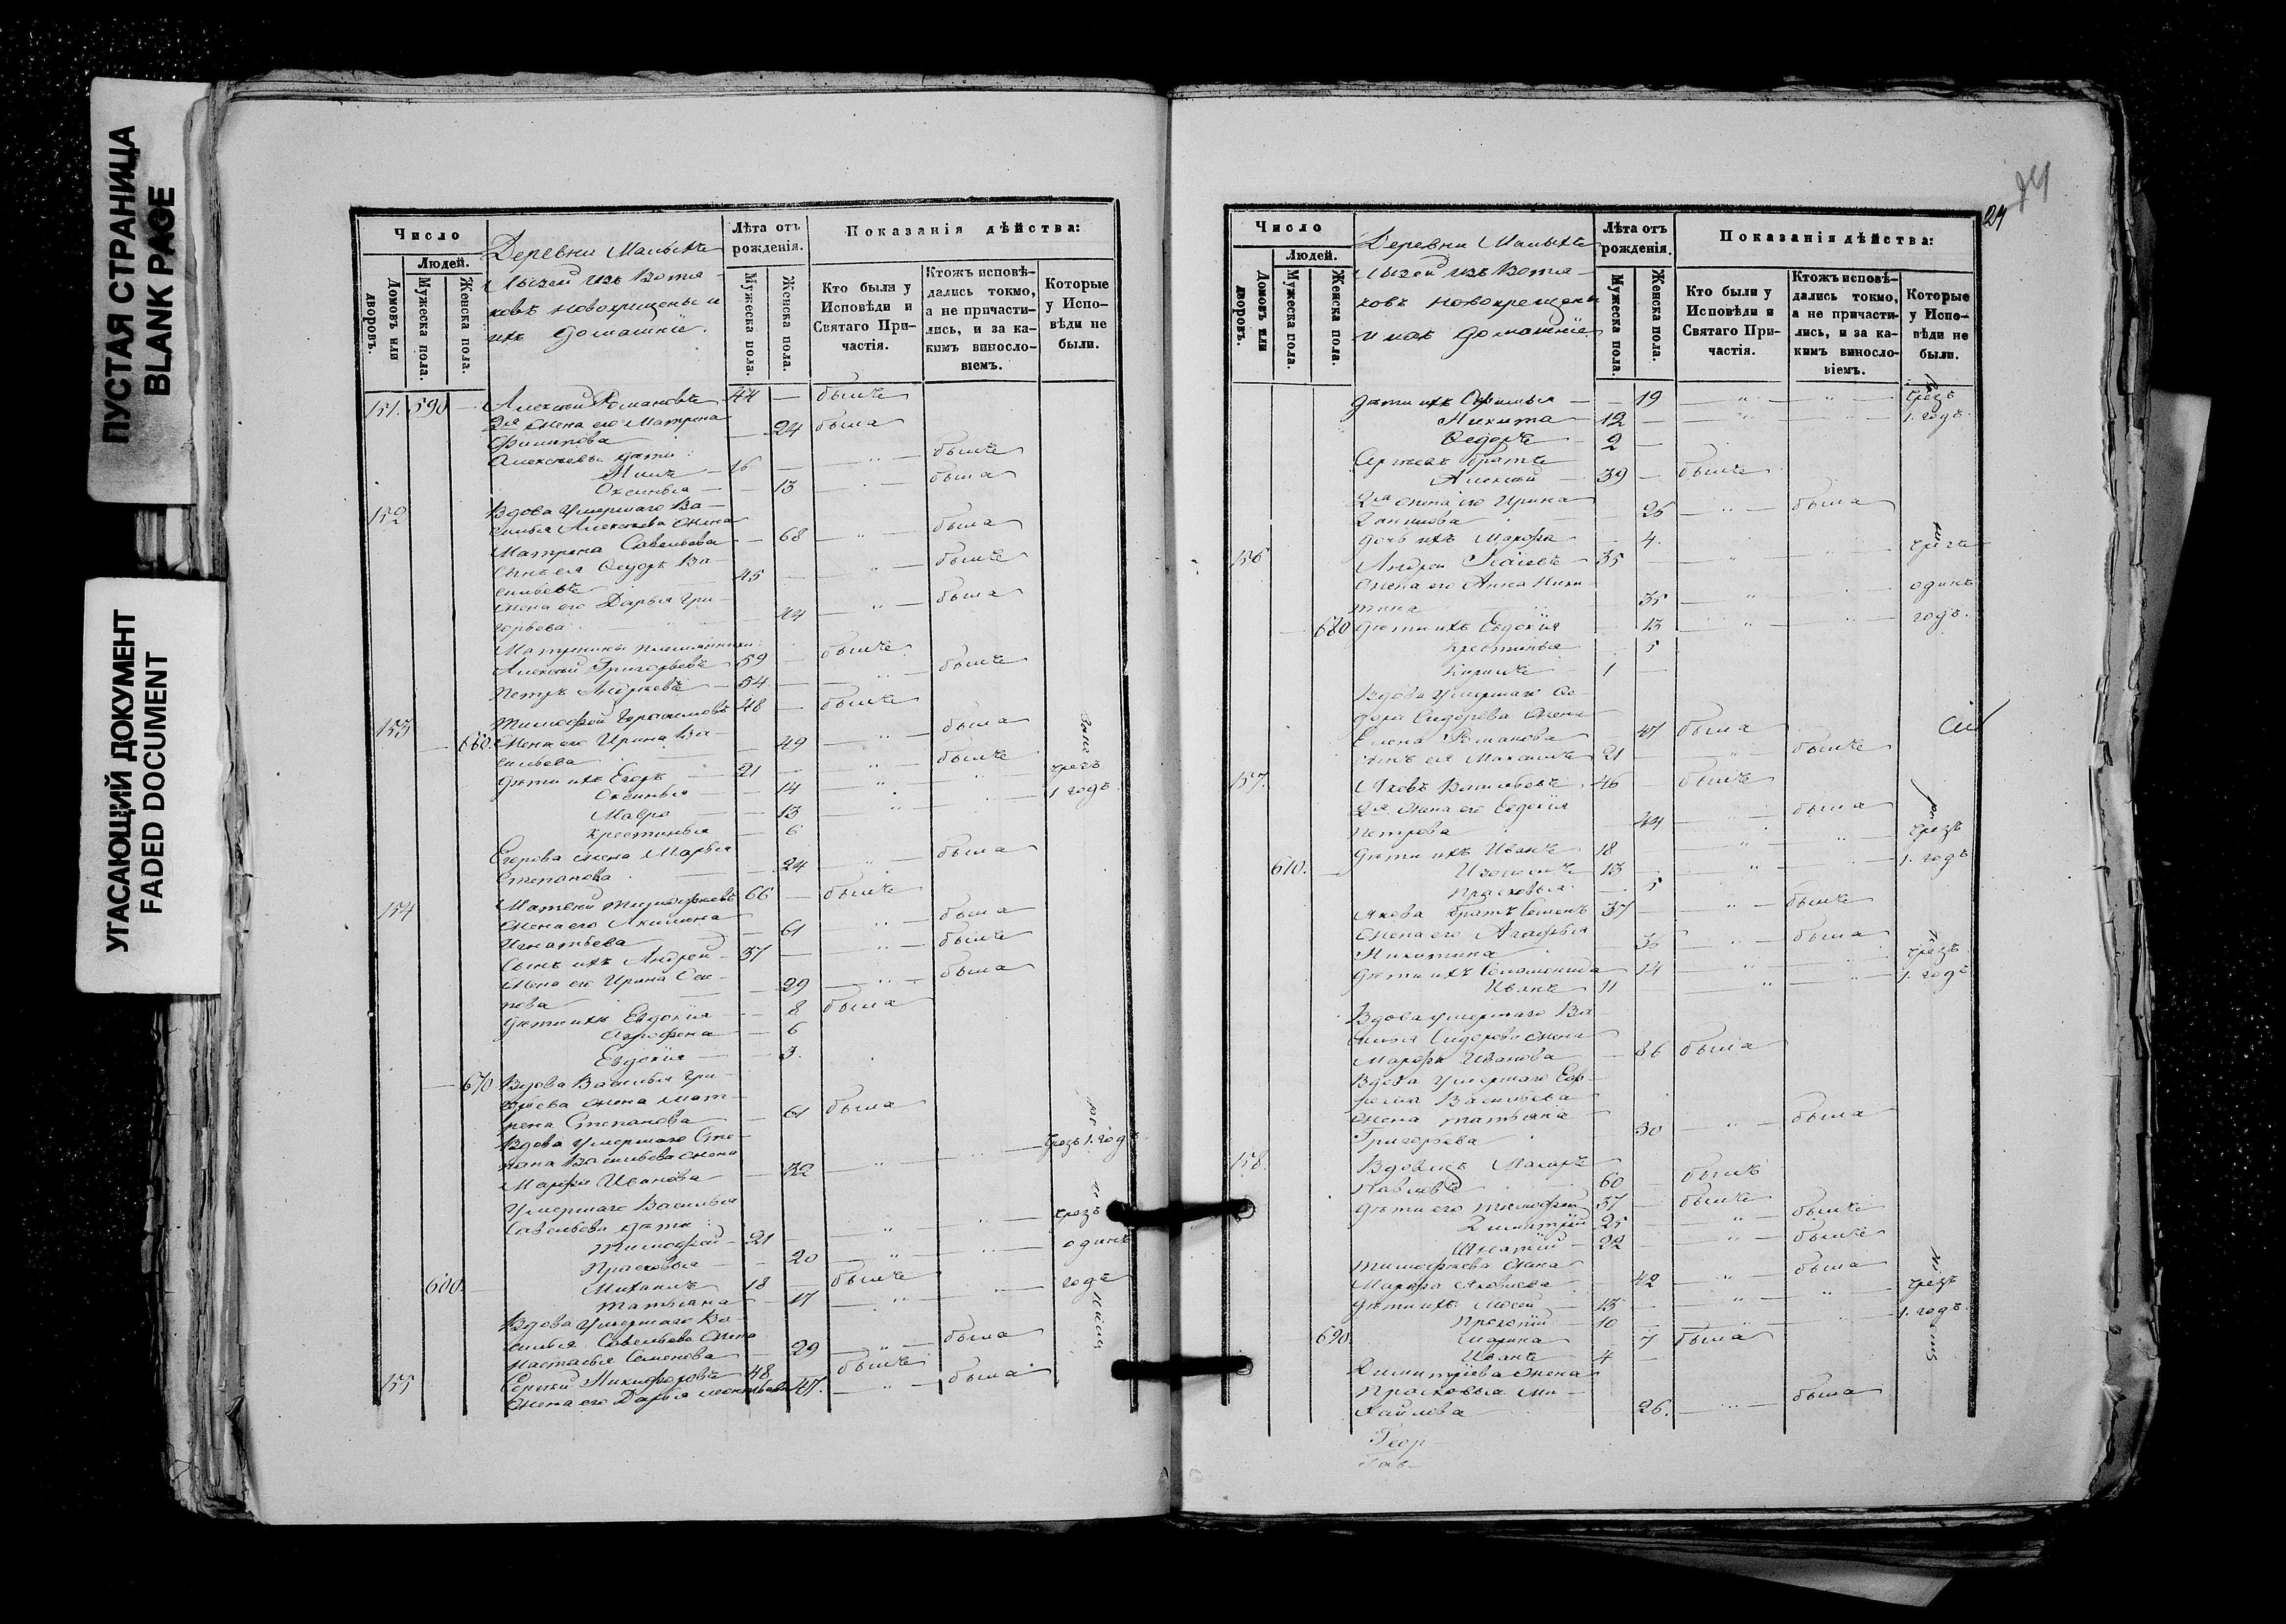 ПУСТАЯ СТРАНИЦА
BLANK PAGE
УГАСАЮЩИЙ ДОКУМЕНТ
FADED DOCUMENT
Число
Домовъ или дворовъ.
Людей.
Мужеска пола.
Женска пола.
Деревни Малыхъ
Лызей изъ Вотя-
ковъ новокрещены и
ихъ домашніе.
Лѣта отъ рожденія.
Мужеска пола.
Женска пола.
Показанія дѣйства:
Кто были у Исповѣди и Святаго Причастія.
Ктожъ исповѣдались токмо, а не причастились, и за какимъ винословіемъ.
Которые у Исповѣди не были.
151. 590 — Алексѣй Романовъ 44 — былъ
2я жена его Матрена
Филипова — 24 была
Алексѣевы дѣти:
— 16 — — „ — былъ
Оксинья — — 13 — „ — была
152 Вдова умершаго Ва-
силья Алексѣева жена
Матрена Савельева — — 68 — „ — была
Сынъ ея Ѳедоръ Ва-
сильевъ 45 — — „ — былъ
жена его Дарья Гри-
горьева — 44 — „ — была
Матренины племянники
Алексѣй Григорьевъ 59 — былъ
Петръ Андреевъ — 54 — — „ — былъ
153 Тимоѳей Герасимовъ 48 — былъ
— 660. жена его Ирина Ва-
сильева — 49 — „ — была
дѣти ихъ Егоръ — 21 — — „ — былъ
Оксинья — — 14 — „ чрезъ
Мавра — — 13 — „ 1 годъ
Крестинья — 6
Егорова жена Марья
Степанова — 24 — „ — была
154 Матвей Тимоѳеевъ 66 — былъ
жена его Акилина
Игнатьева — 61 — „ — была
Сынъ ихъ Андрей — 37 — — „ — былъ
Жена его Ирина Оси-
пова — 29 — „ — была
дѣти ихъ Евдокия — — 8 была
Агрофена — 6
Евдокия — — 3.
— 670 Вдова Василья Гри-
горьева жена Мат-
рена Степанова — 61 была
Вдова умершаго Сте-
пана Васильева жена
Марфа Иванова — 32 — „ — чрезъ 1. годъ
Умершаго Василья
Савельева дѣти:
Тимоѳей — 21 — — „ — чрезъ
Прасковья — — 20 — „ — одинъ
600. — Михаилъ 18 — былъ годъ
Татьяна — 17 — „ —
Вдова умершаго Ва-
силья Савельева жена
Настасья Семенова — 29 — „ — была
155 Сергей Никифоровъ 48 былъ
Жена его Дарья Леонтьева 47. — „ — была
24
Число
Домовъ или дворовъ.
Людей.
Мужеска пола.
Женска пола.
Деревни Малыхъ
Лызей изъ Вотя-
ковъ новокрещены
и ихъ домашніе
Лѣта отъ рожденія.
Мужеска пола.
Женска пола.
Показанія дѣйства:
Кто были у Исповѣди и Святаго Причастія.
Ктожъ исповѣдались токмо, а не причастились, и за какимъ винословіемъ.
Которые у Исповѣди не были.
дѣти ихъ Офимья — — 19 — „ — „ — чрезъ
Никита — 12 — 1. годъ
Ѳедоръ — 2 —
Сергѣевъ братъ
Алексѣй — 39 — былъ
2я жена его Ирина
Данилова — 26 — „ — была
дочь ихъ Марфа — 4.
156 Андрей Исаевъ — 35 — чрезъ
жена его Анна Ники-
тина — 35 — „ — одинъ
— 680 дѣти ихъ Евдокия — 13 — „ — годъ.
Крестинья 5
Кирилъ 1 —
Вдова умершаго Ѳе-
дора Сидорова жена
Елена Романова — 47 была
сынъ ея Михаилъ 21 — — „ — былъ
157. Яковъ Васильевъ — 46 — былъ
2я жена его Евдокия
Петрова — 44 — была
дѣти ихъ Иванъ 18 — „ — чрезъ
610. — 13 — „ — 1. годъ
Прасковья — 5
Якова братъ Семенъ 37 — — „ — былъ
жена его Агафья
Никитина — 36 — „ — была
дѣти ихъ Соломонида 14 — „ — чрезъ
Иванъ 11 — „ — 1. годъ
Вдова умершаго Ва-
силья Сидорова жена
Марфа Иванова — 86 была
Вдова умершаго Еф-
рема Васильева
жена Татьяна
Григорьева — 30 — „ — была
158. Вдовецъ Макаръ
Павловъ 60 — былъ
дѣти его Тимоѳей 37 — былъ
Димитрій 25 — — „ — былъ
Игнатій — 22 — — „ — былъ
Тимоѳеева жена
Марфа Яковлева — 42 — „ — была
дѣти ихъ Мосей — 15 — — „ — чрезъ
Прокопій — 10 — — 1. годъ.
690. Марина — 7 была
Иванъ — 4 —
Димитріева жена
Прасковья Ми-
хайлова — 26. — „ — была